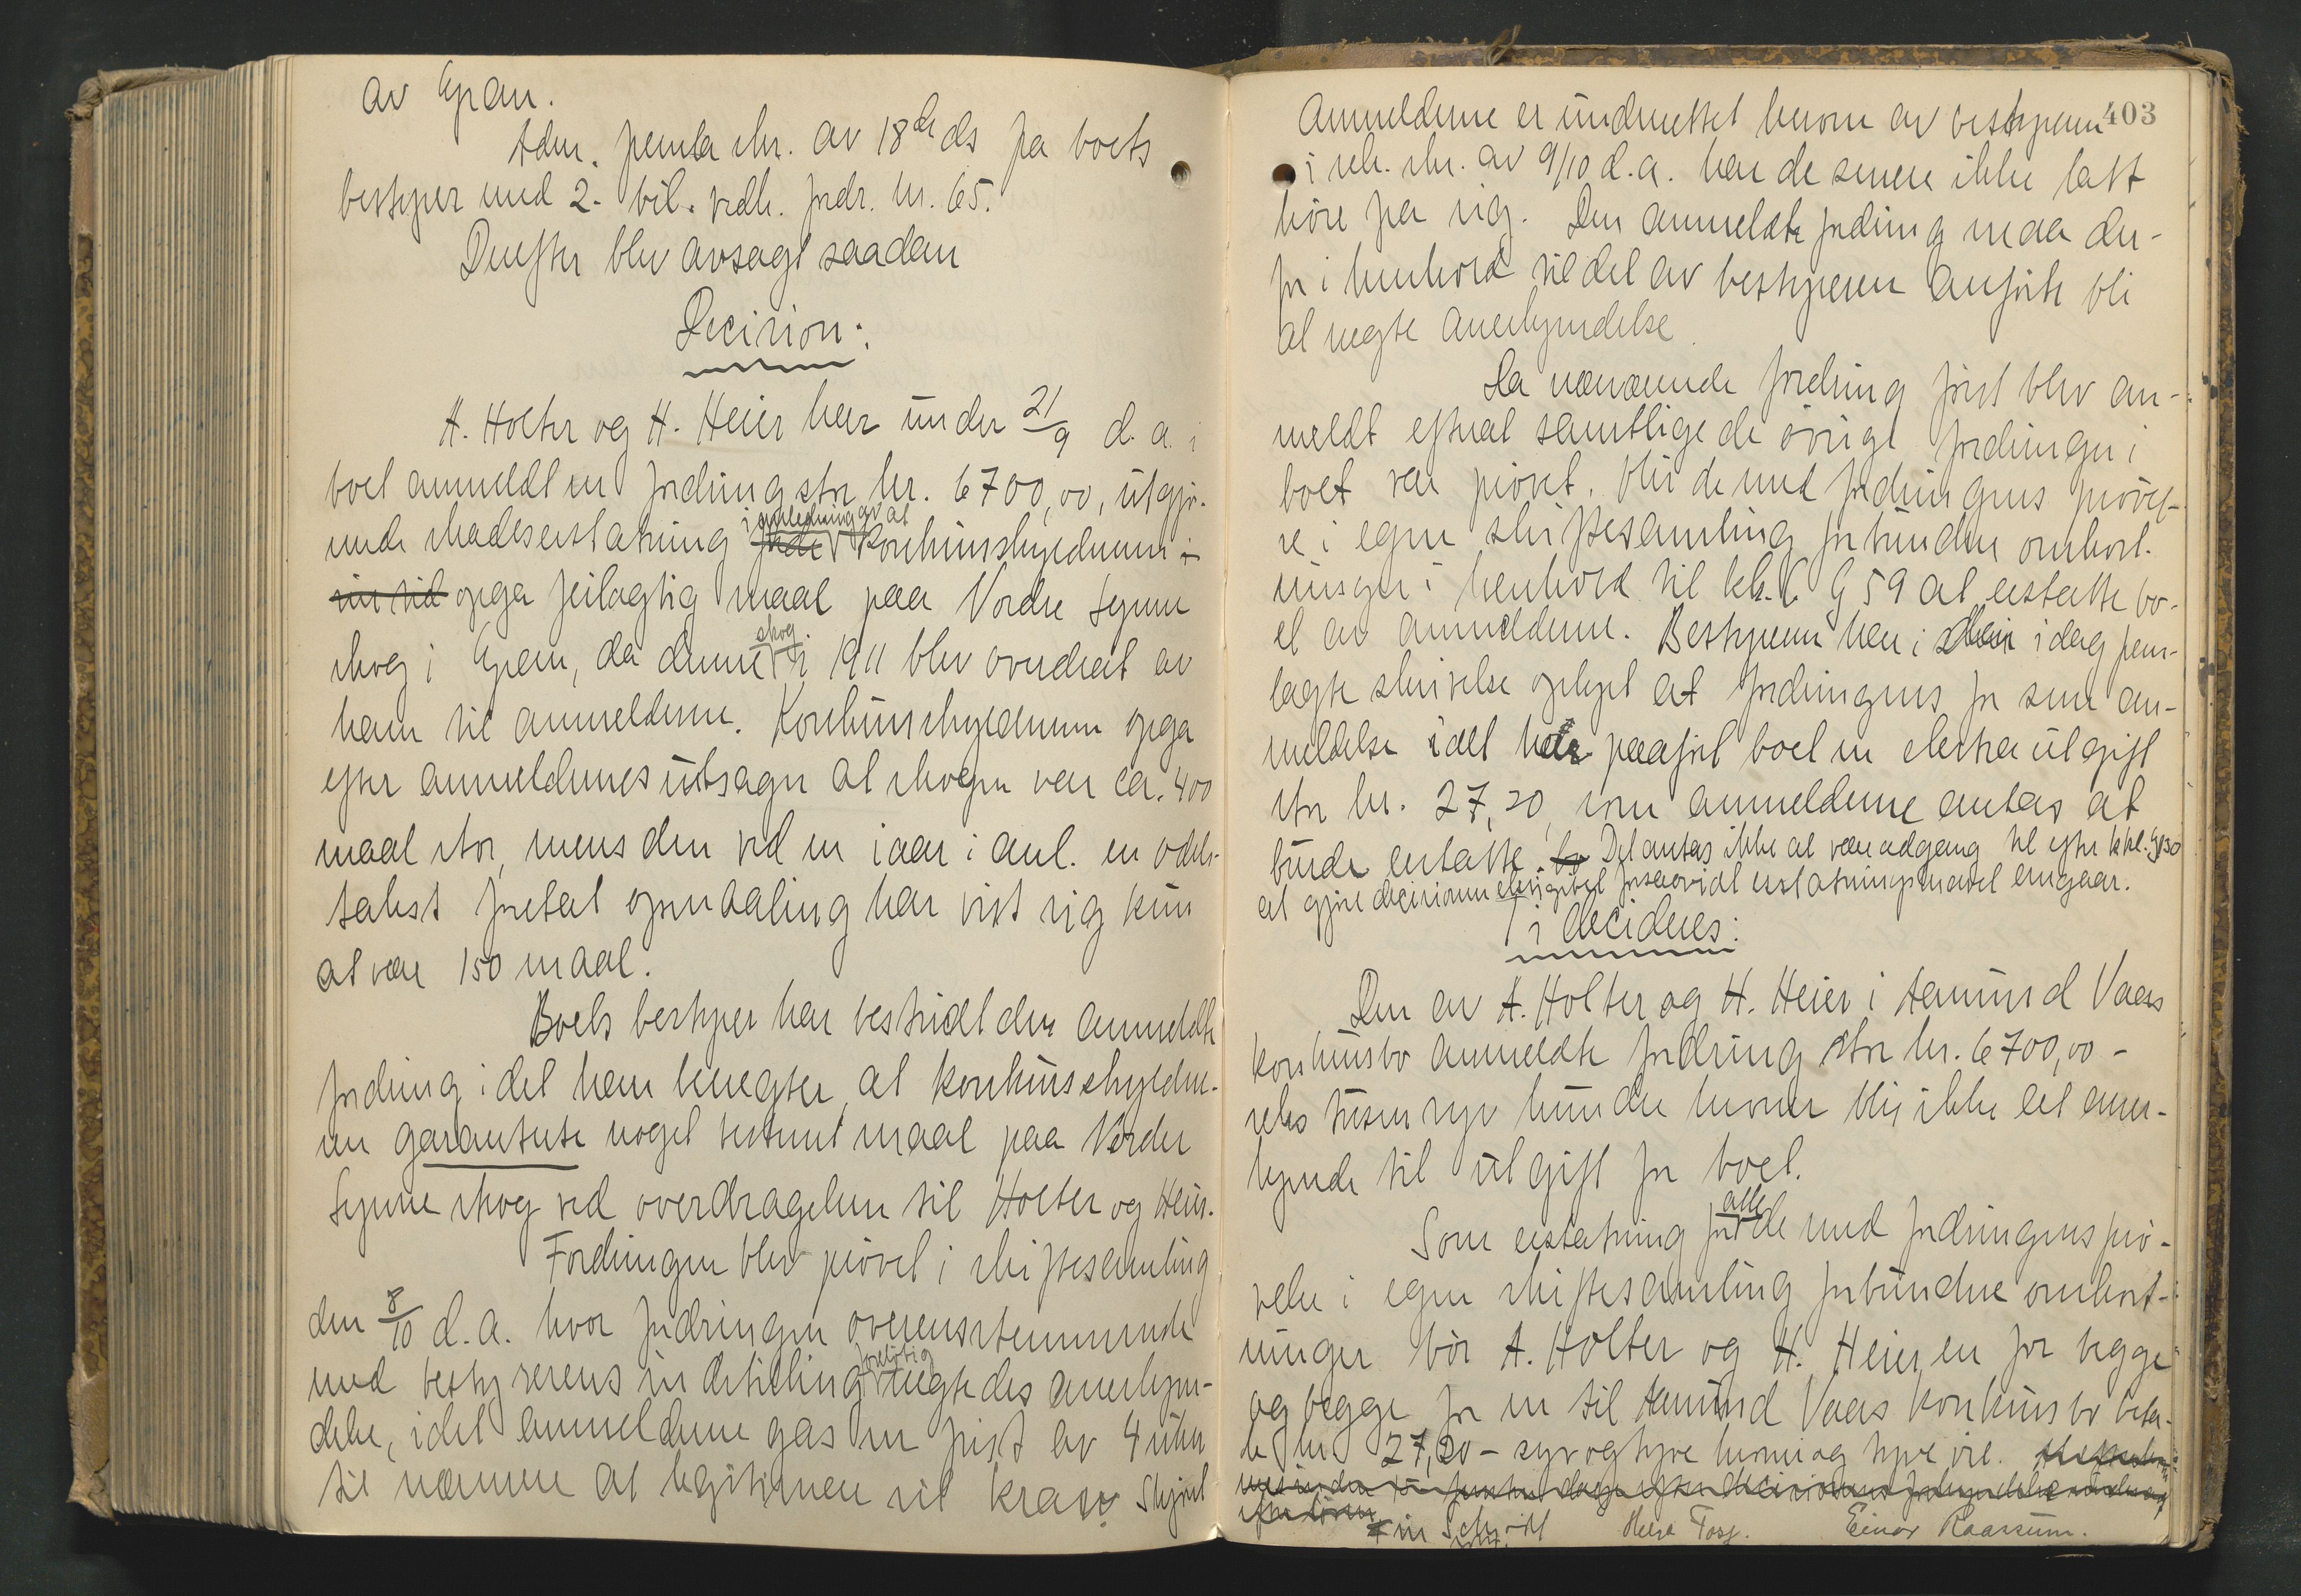 av Gran.
Adm. femla skr. av 18de ds fra boets
bestyrer med 2. bil. vedk. fordr. nr. 65.
Derefter blev avsagt saadan
Decision:
A. Holter og H. Heier har under 21/9 d. a. i
boet anmeldt en fordring stor kr. 6700,00, utgjø-
rende skadeserstatning i anledning av at konkursskyldneren
opga feilagtig maal paa Nordre Synne
skog i Gran, da denne skog i 1911 blev overdrat av
ham til anmelderne. Konkursskyldneren opga
efter anmeldernes utsagn at skogen var ca. 400
maal stor, mens den ved en iaar i anl. en odels-
takst foretat opmaaling har vist sig kun
at være 150 maal.
Boets bestyrer har bestridt den anmeldte
fordring idet han benegter, at konkursskyldne-
ren garanterte noget bestemt maal paa Nordre
Synne skog ved overdragelsen til Holter og Heier.
Fordringen blev prøvet i skiftesamling
den 8/10 d. a. hvor fordringen overensstemmende
med bestyrerens indstilling foreløbig negtedes anerkjen-
delse, idet anmelderne gas en frist av 4 uker
til nærmere at legitimere sit krav. Skjønt
403
Anmelderne er underrettet herom av bestyreren
i rek. skr. av 9/10 d. a. har de senere ikke latt
høre fra sig. Den anmeldte fordring maa der-
for i henhold til det av bestyreren anførte bli
at negte anerkjendelse.
Da nærværende fordring først blev an-
meldt efterat samtlige de øvrige fordringer i
boet var prøvet, blir de med fordringens prøvel-
se i egen skiftesamling forbundne omkost-
ninger i henhold til kkl. § 59 at erstatte bo-
et av anmelderne. Bestyreren har i idag frem-
lagte skrivelse oplyst at fordringens for sene an-
meldelse idet hele paaført boet en ekstra utgift
stor kr. 27,20, som anmelderne antas at
burde erstatte. Det antas ikke at være adgang til efter kkl. § 130
at gjøre decisionen eksigibel forsaavidt erstatningsansvaret angaar.
Ti decideres:
Den av A. Holter og H. Heier i Aamund Vaas
konkursbo anmeldte fordring stor kr. 6700,00 –
seks tusen syv hundre kroner blir ikke at aner-
kjende til utgift for boet.
Som erstatning for alle de med fordringens prø-
velse i egen skiftesamling forbundne omkost-
ninger bør A. Holter og H. Heier en for begge
og begge for en til Aamund Vaas konkursbo beta-
le kr. 27,20 – syv og tyve kroner og tyve øre.
Helge Foss. Einar Kaarsum.